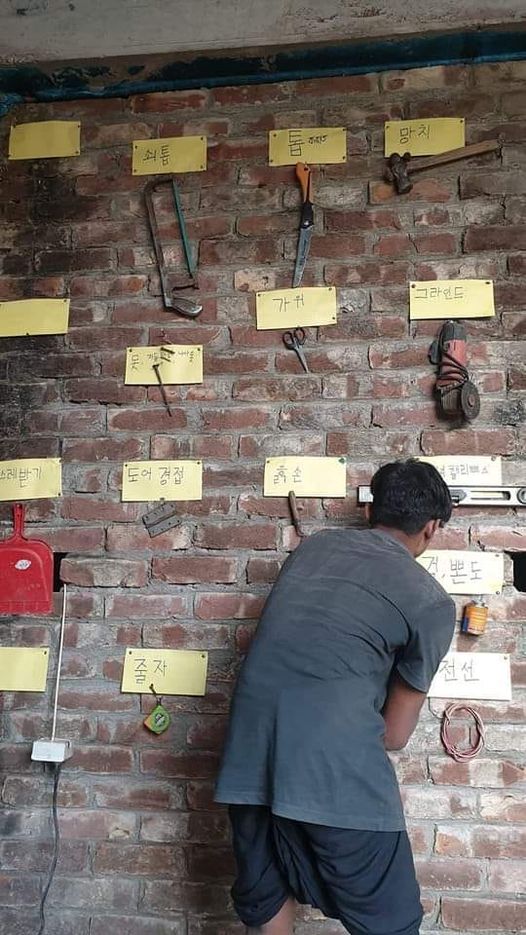 쇠톱
톱
망치
가위
그라인드
못,
쓰레받기
도어 경접
흙손
캘리뻐스
뽄도
줄자
전선